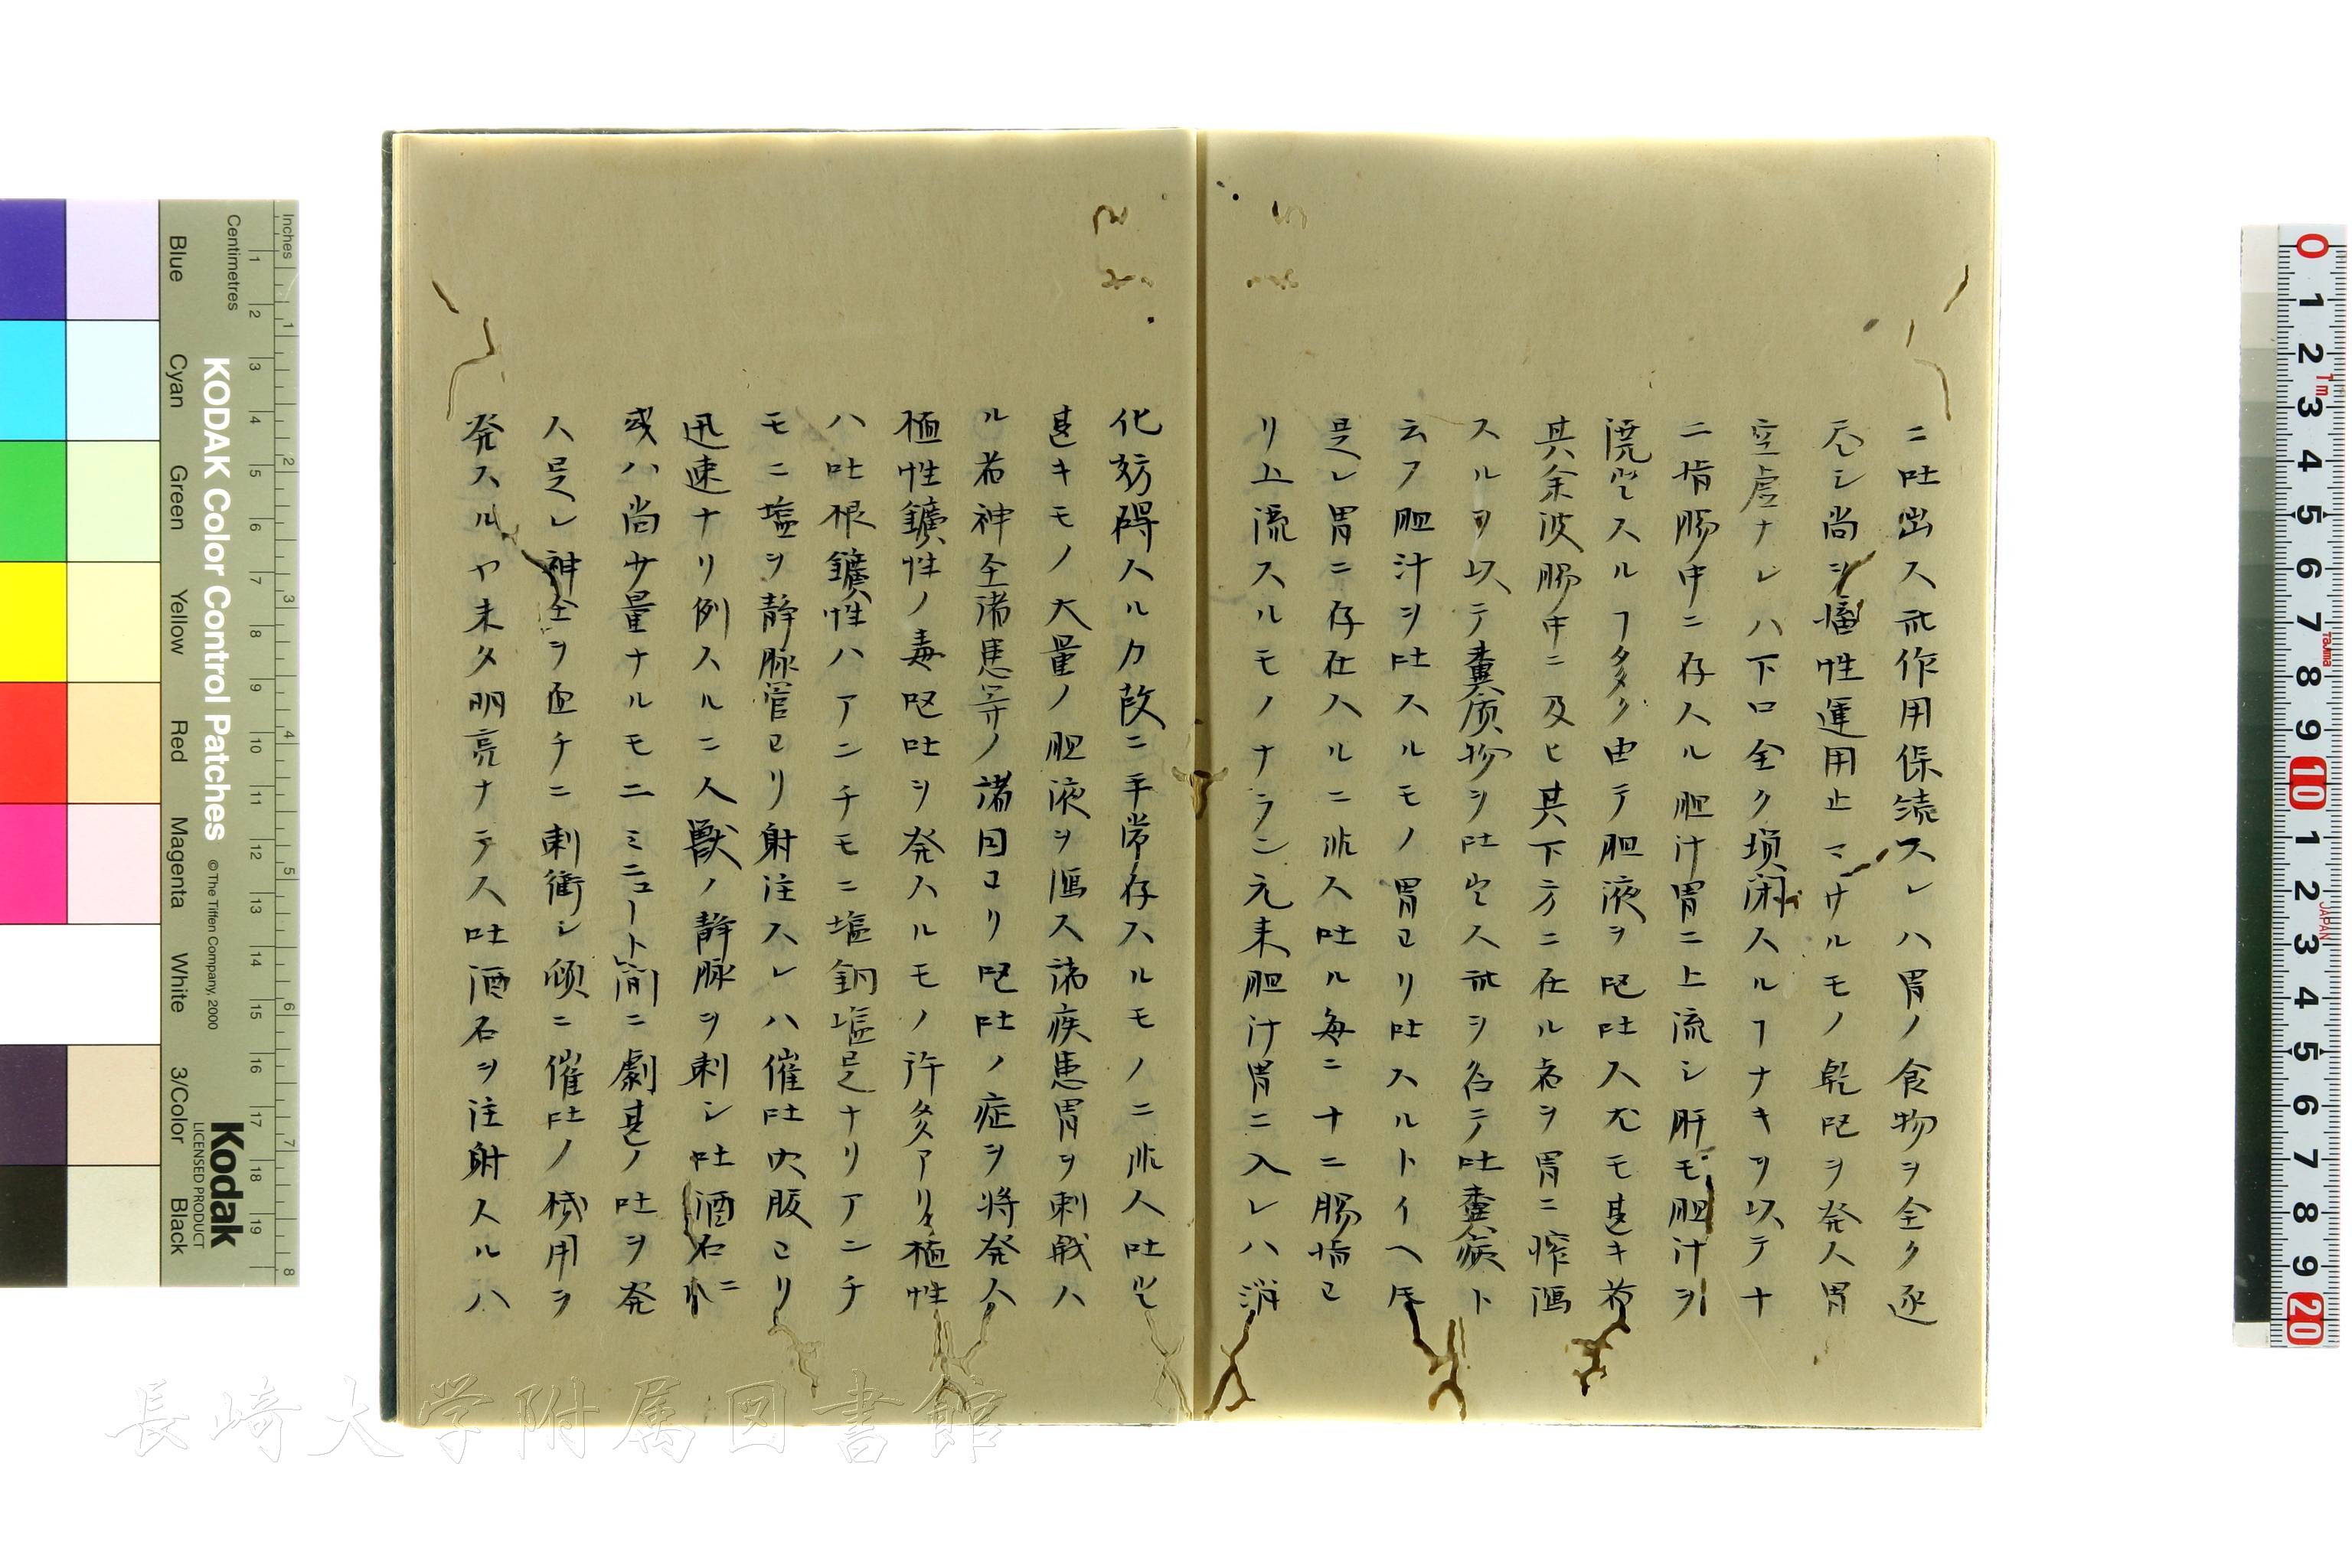 ニ吐出ス此作用保続スレハ胃ノ食物ヲ全ク逐
尽シ尚ヲ搐性運用止マサルモノ乾呕ヲ発ス胃
空虚ナレハ下口全ク損閉スルヿナキヲ以テナ
ニ指腸中ニ存スル胆汁胃ニ上流シ肝モ胆汁ヲ
流出スルヿ多ク由テ胆液ヲ呕吐ス尤モ甚キ者
其余波腸中ニ及ヒ其下方ニ在ル者ヲ胃ニ搾漓
スルヲ以テ糞质物ヲ吐出ス此ヲ名テ吐糞病ト
云フ胆汁ヲ吐スルモノ胃ヨリ吐スルトイヘ𪜈
是レ胃ニ存在スルニ非ス吐ル毎ニ十二腸指ヨ
リ上流スルモノナラン元来胆汁胃ニ入レハ消
化妨碍スルカ故ニ平常存スルモノニ非ス吐出
甚キモノ大量ノ胆液ヲ漓ス諸疾患胃ヲ刺戟ハ
ル若神圣諸患等ノ諸因ヨリ呕吐ノ症ヲ将発ス
植性鑛性ノ毒呕吐ヲ発スルモノ許多アリ植性
ハ吐根鑛性ハアンチモニ塩銅塩是ナリアンチ
モニ塩ヲ静脉管ヨリ射注スレハ催吐内服ヨリ
迅速ナリ例スルニ人獣ノ静脉ヲ刺シ吐酒石水ニ
或ハ尚サ量ナルモ二ミニュート间ニ劇甚ノ吐ヲ発
ス是レ神圣ヲ直チニ刺衝シ頻ニ催吐ノ機用ヲ
発スルヤ未タ明亮ナラス吐酒石ヲ注射スルハ
Inches
Centimetres
Blue
Cyan
Green
Yellow
Red
Magenta
White
3/Color
Black
KODAK Color Control Patches
© The Tiffen Company, 2000
Kodak
LICENSED PRODUCT
長崎大学附属図書館